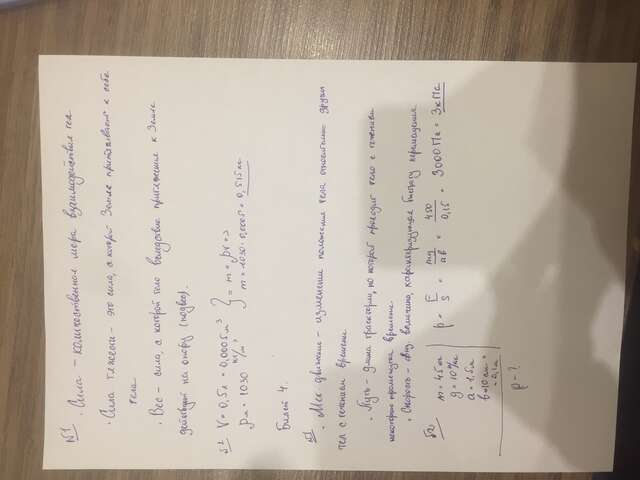 №1
· Сила – количественная мера взаимодействия тел
· Сила тяжести – это сила, с которой Земля притягивает к себе
тела
· Вес – сила, с которой тело вследствие притяжения к Земле
действует на опору (подвес).
№2 V = 0,5 л = 0,0005 м³
ρм = 1030 кг/м³
} = m = ρV = >
m = 1030 · 0,0005 = 0,515 кг
Билет 4.
№1
· Мех движение – изменение положения тела относительно других
тел с течением времени
· Путь – длина траектории, по которой проходит тело с течением
некоторого промежутка времени.
· Скорость – величина, характеризующая быстроту перемещения
№2
m = 45 кг
g = 10 Н/кг
a = 1,5 м
b = 10 см =
= 0,1 м
p - ?
p = F/S = mg/ab = 450/0,15 = 3000 Па = 3 кПа